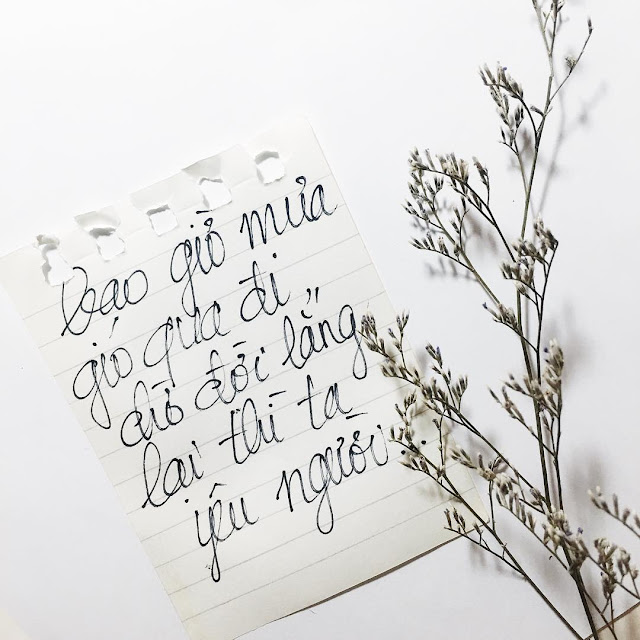 bao giờ mưa
gió qua đi
chờ đời lắng
lại thì ta
yêu người...